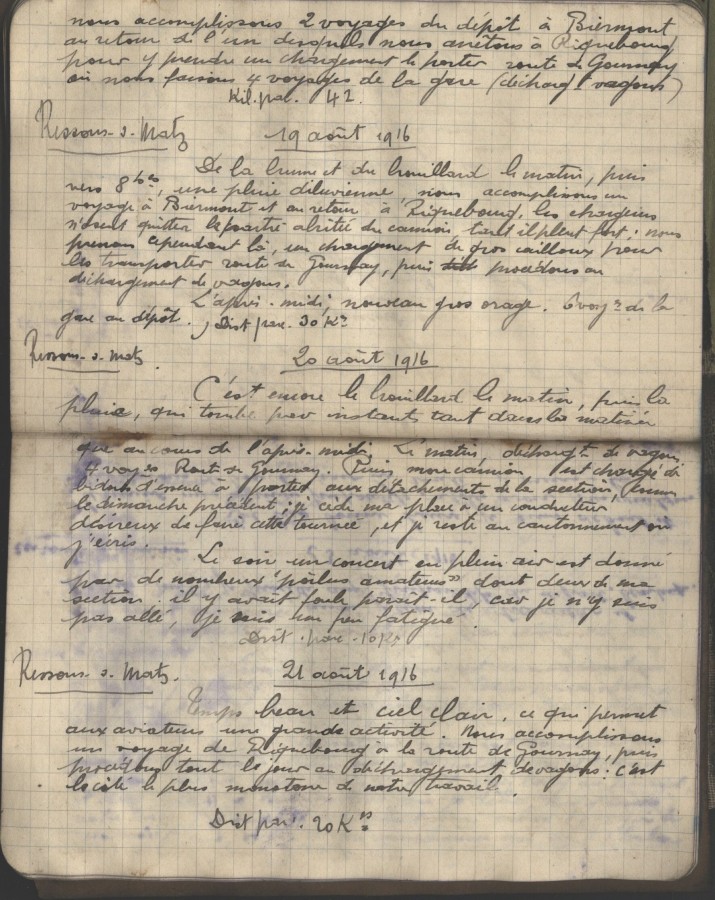 nous accomplissons 2 voyages du dépôt à Biermont
au retour de l'un desquels nous arrêtons à Riquebourg
pour y prendre un chargement le porter route de Gournay
où nous faisons 4 voyages de la gare (décharg.t vagons)
Kil. par. 42.
Ressons-s-Matz 19 août 1916
De la brume et du brouillard le matin, puis
vers 8 hes, une pluie diluvienne, nous accomplissons un
voyage à Biermont et au retour à Riquebourg, les chargeurs
n'osent quitter la partie abritée du camion tant il pleut fort; nous
prenons cependant là, un chargement de gros cailloux pour
les transporter route de Gournay, puis procédons au
déchargement de vagons.
L'après-midi, nouveau gros orage. 6 voy.es de la
gare au dépôt. Dist par. 30 Kes
Ressons-s-Matz. 20 août 1916
C'est encore le brouillard le matin, puis la
pluie, qui tombe par instants tant dans la matinée
que au cours de l'après-midi. Le matin, décharg.t de vagons
4 voyes Route de Gournay. Puis mon camion est chargé de
bidons d'essence à porter aux détachements de la section, comme
le dimanche précédent; je cède ma place à un conducteur
désireux de faire cette tournée, et je reste au cantonnement où
j'écris.
Le soir un concert en plein air est donné
par de nombreux "poilus amateurs" dont deux de ma
section. il y avait foule parait-il, car je n'y suis
pas allé, je suis un peu fatigué.
Dist. par. 10 Kes
Ressons-s-Matz. 21 août 1916
Temps beau et ciel clair, ce qui permet
aux aviateurs une grande activité. Nous accomplissons
un voyage de Riquebourg à la route de Gournay, puis
procédons tout le jour au déchargement de vagons: c'est
le côté le plus monotone de notre travail.
Dist par. 20 Kes